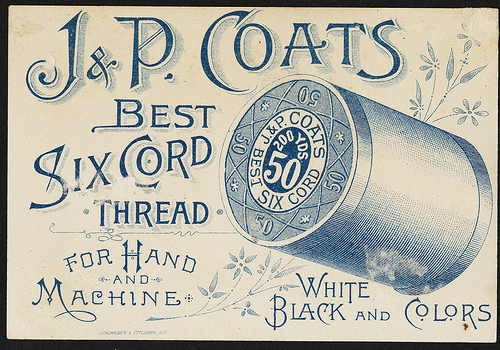 J. & P. COATS
BEST
SIX CORD
THREAD
FOR HAND
AND
MACHINE
J. & P. COATS
200 YDS
50
BEST SIX CORD
50
50
50
50
WHITE
BLACK AND COLORS